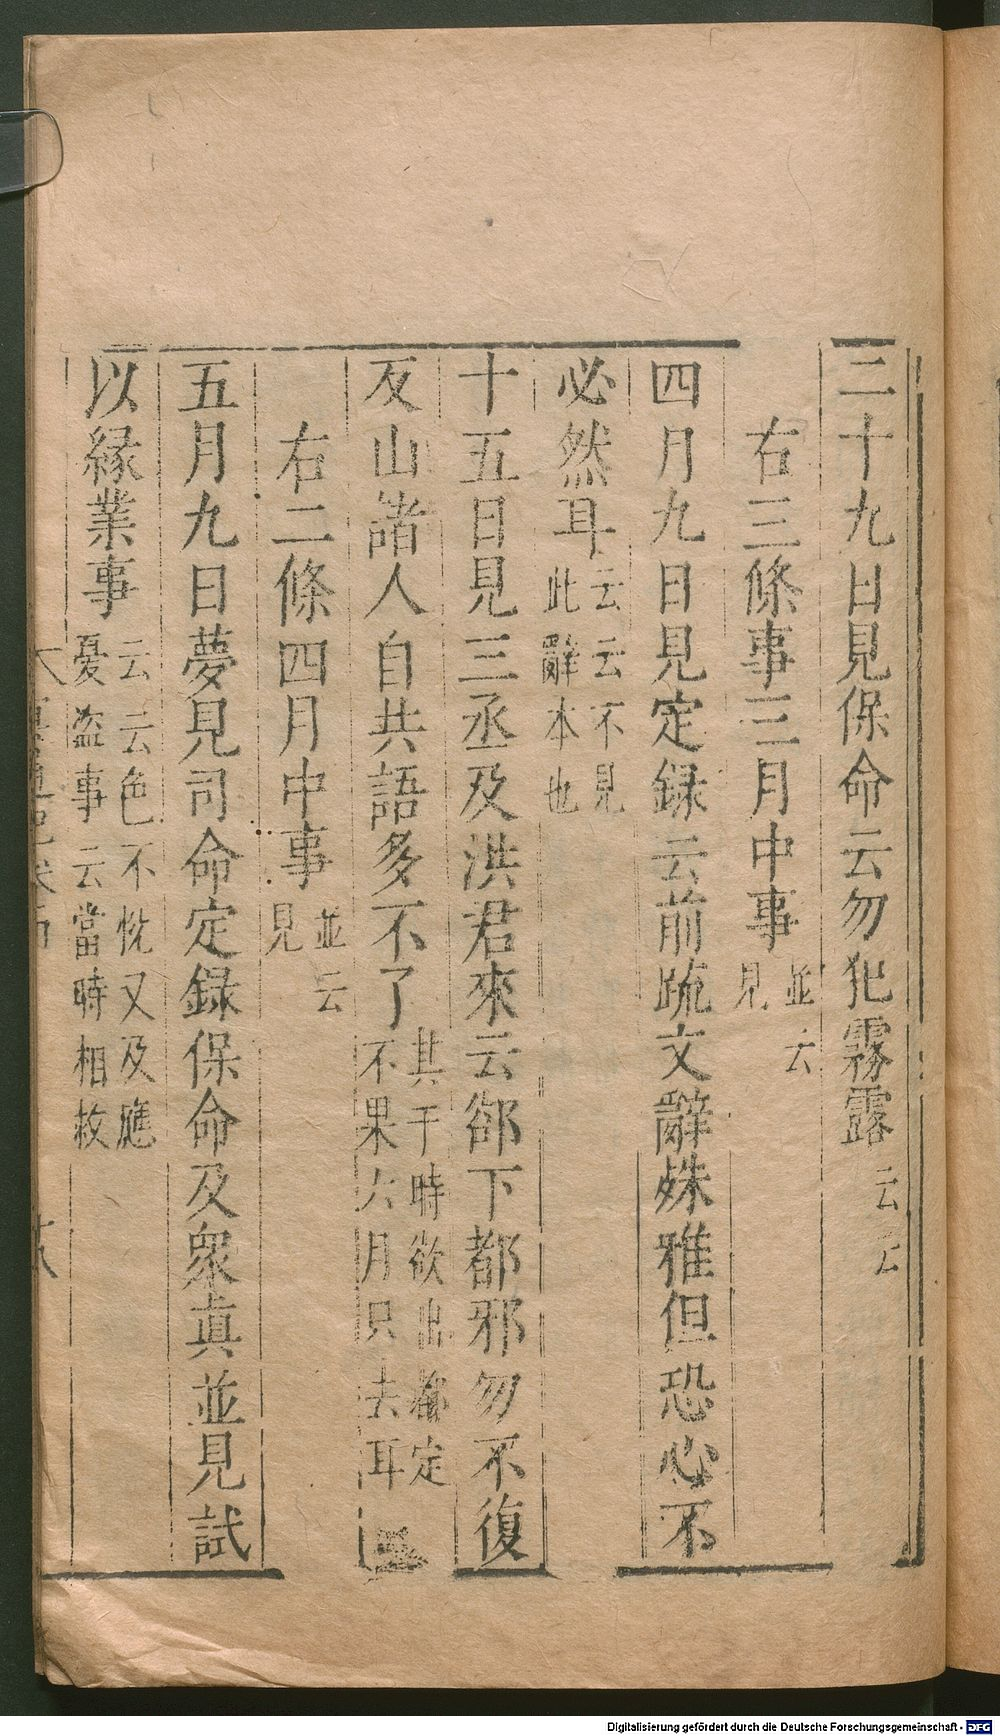 二十九日見保命云勿犯霧露云云
右三條事三月中事並云見
四月九日見定録云前䟽文辭殊雅但恐心不
必然耳云云不見此辭本也
十五日見三丞及洪君來云郤下都邪勿不復
反山諸人自共語多不了其于時欲出都定不果六月只去耳
右二條四月中事並云見
五月九日夢見司命定録保命及衆真並見試
以縁業事云云色不恱又及應憂盗事云當時相救
Digitalisierung gefördert durch die Deutsche Forschungsgemeinschaft - DFG